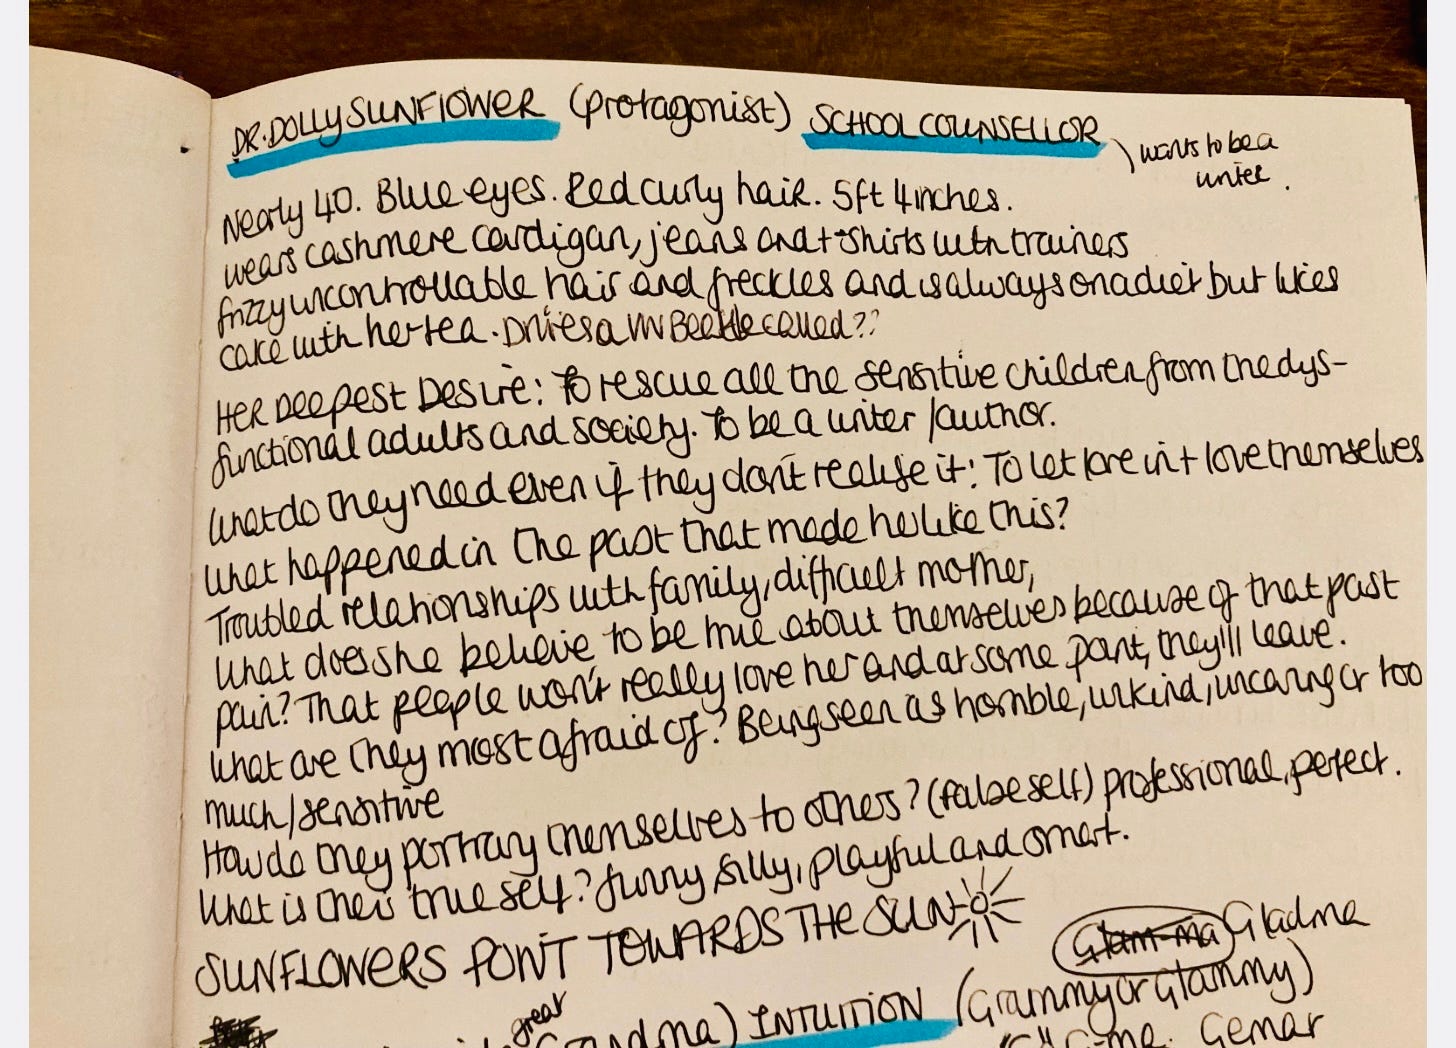 DR. DOLLY SUNFLOWER (protagonist) SCHOOL COUNSELLOR
wants to be a
writer.
Nearly 40. Blue eyes. Red curly hair. 5ft 4 inches.
wears cashmere cardigan, jeans and t-shirts with trainers
frizzy uncontrollable hair and freckles and is always on a diet but likes
cake with her tea. Drives a VW Beetle called??
HER DEEPEST DESIRE: To rescue all the sensitive children from the dys-
functional adults and society. To be a writer/author.
What do they need even if they don't realise it: To let love in + love themselves
What happened in the past that made her like this?
Troubled relationships with family, difficult mother,
What does she believe to be true about themselves because of that past
pain? That people won't really love her and at some point, they'll leave.
What are they most afraid of? Being seen as horrible, unkind, uncaring or too
much/sensitive
How do they portray themselves to others? (false self) professional, perfect.
What is their true self? funny, silly, playful and smart.
SUNFLOWERS POINT TOWARDS THE SUN
Glam-ma Gladma
great
Grandma) INTUITION (Grammy or Glammy)
G-ma. Gemar